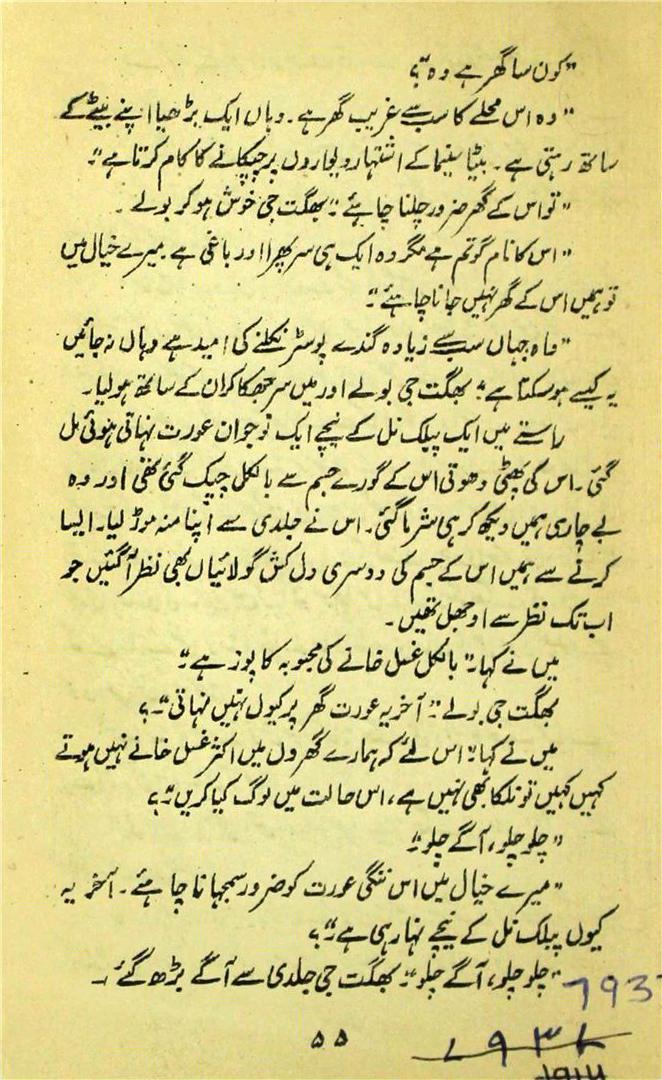 "کون سا گھر ہے وہ"؟
"وہ اس محلے کا سب سے غریب گھر ہے۔ وہاں ایک بڑھیا اپنے بیٹے کے
ساتھ رہتی ہے۔ بیٹا سینما کے اشتہار دیواروں پر چپکانے کا کام کرتا ہے"۔
"تو اس کے گھر ضرور چلنا چاہئے"۔ بھگت جی خوش ہو کر بولے۔
"اس کا نام گوتم ہے مگر وہ ایک ہی سر پھرا اور باغی ہے میرے خیال میں
تو ہمیں اس کے گھر نہیں جانا چاہئے"۔
"واہ جہاں سب سے زیادہ گندے پوسٹر نکلنے کی امید ہے وہاں نہ جائیں
یہ کیسے ہو سکتا ہے"۔ بھگت جی بولے اور میں سر جھکا کر ان کے ساتھ ہو لیا۔
راستے میں ایک پبلک نل کے نیچے ایک نوجوان عورت نہاتی ہوئی مل
گئی۔ اس کی پھٹی دھوتی اس کے گورے جسم سے بالکل چپک گئی تھی اور وہ
بے چاری ہمیں دیکھ کر ہی شرما گئی۔ اس نے جلدی سے اپنا منہ موڑ لیا۔ ایسا
کرنے سے ہمیں اس کے جسم کی دوسری دل کش گولائیاں بھی نظر آ گئیں جو
اب تک نظر سے اوجھل تھیں۔
میں نے کہا۔ "بالکل غسل خانے کی محبوبہ کا پوز ہے"۔
بھگت جی بولے۔ "آخر یہ عورت گھر پر کیوں نہیں نہاتی"۔؟
میں نے کہا۔ "اس لئے کہ ہمارے گھروں میں اکثر غسل خانے نہیں ہوتے
کہیں کہیں تو نلکا بھی نہیں ہے، اس حالت میں لوگ کیا کریں"۔؟
"چلو چلو، آگے چلو"۔
"میرے خیال میں اس ننگی عورت کو ضرور سمجھانا چاہئے۔ آخر یہ
کیوں پبلک نل کے نیچے نہا رہی ہے"۔؟
"چلو چلو، آگے چلو"۔ بھگت جی جلدی سے آگے بڑھ گئے۔
۵۵